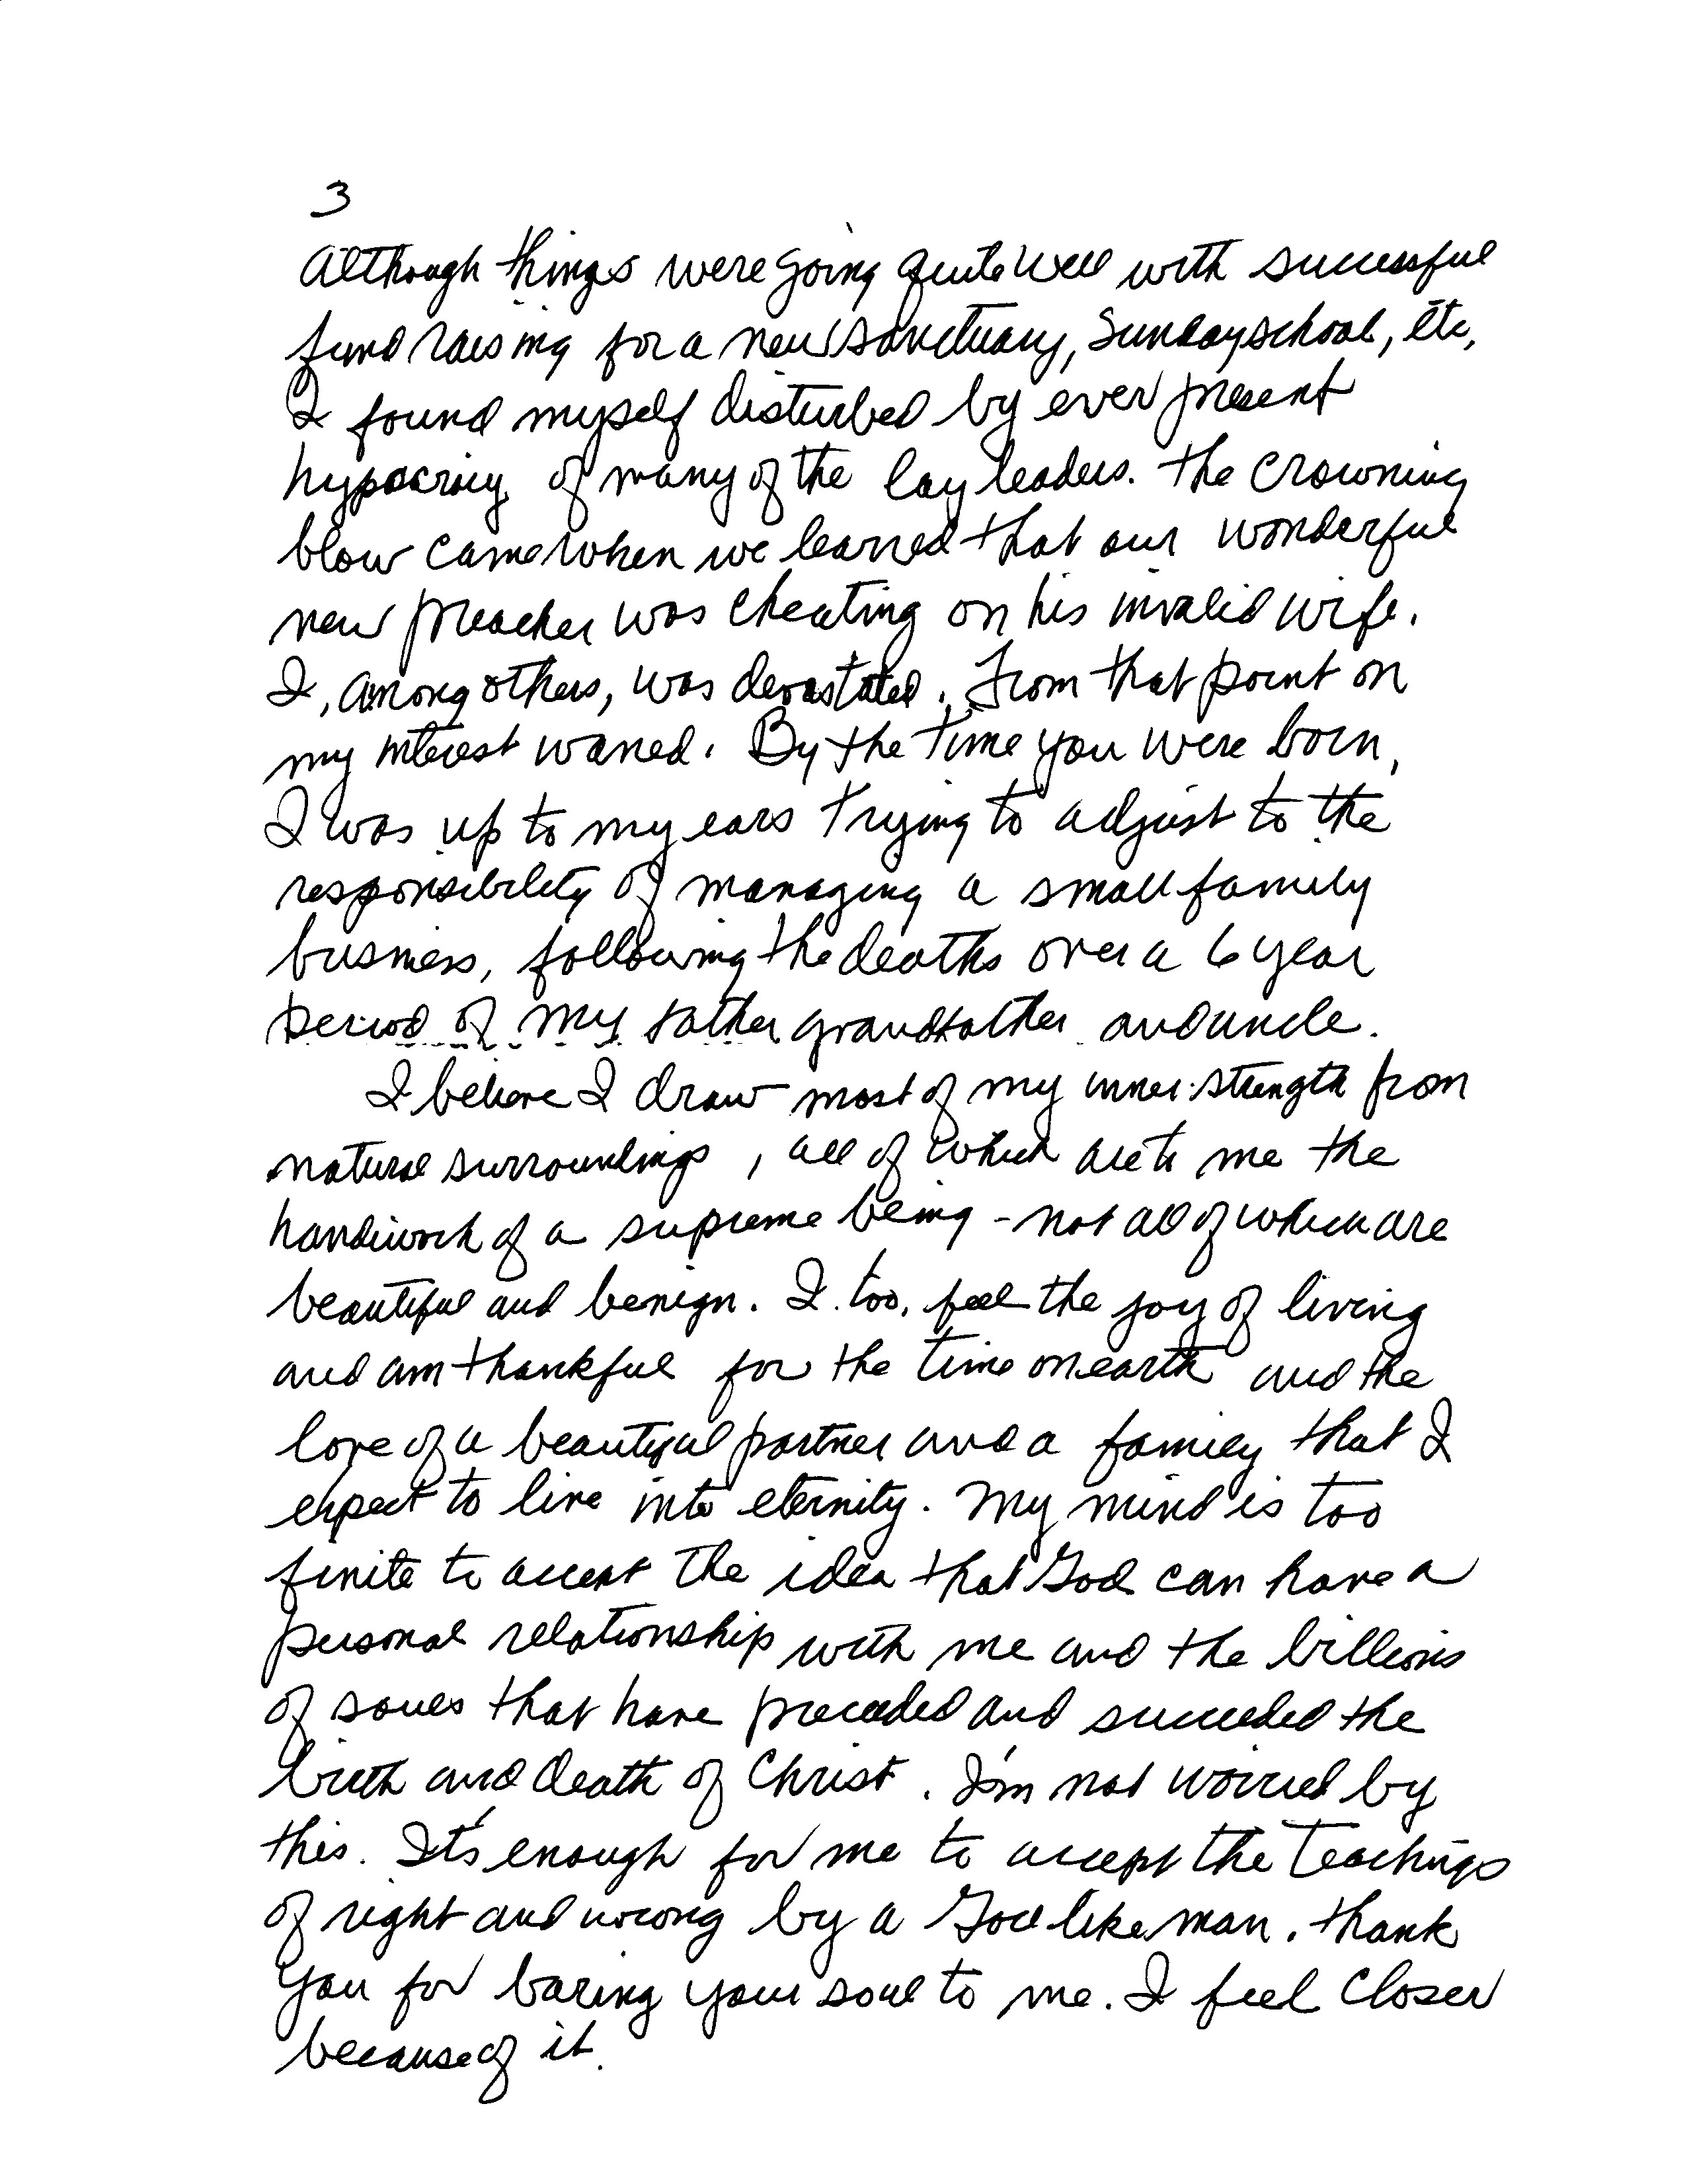 3
Although things were going quite well with successful
fund raising for a new sanctuary, Sunday school, etc,
I found myself disturbed by ever present
hypocrisy of many of the lay leaders. The crowning
blow came when we learned that our wonderful
new preacher was cheating on his invalid wife.
I, among others, was devastated. From that point on
my interest waned. By the time you were born,
I was up to my ears trying to adjust to the
responsibility of managing a small family
business, following the deaths over a 6 year
period of my father grandfather and uncle.
I believe I draw most of my inner strength from
natural surroundings, all of which are to me the
handiwork of a supreme being - not all of which are
beautiful and benign. I too, feel the joy of living
and am thankful for the time on earth and the
love of a beautiful partner and a family that I
expect to live into eternity. My mind is too
finite to accept the idea that God can have a
personal relationship with me and the billions
of souls that have preceded and succeeded the
birth and death of Christ. I'm not worried by
this. It's enough for me to accept the teachings
of right and wrong by a God like man. Thank
you for baring your soul to me. I feel closer
because of it.